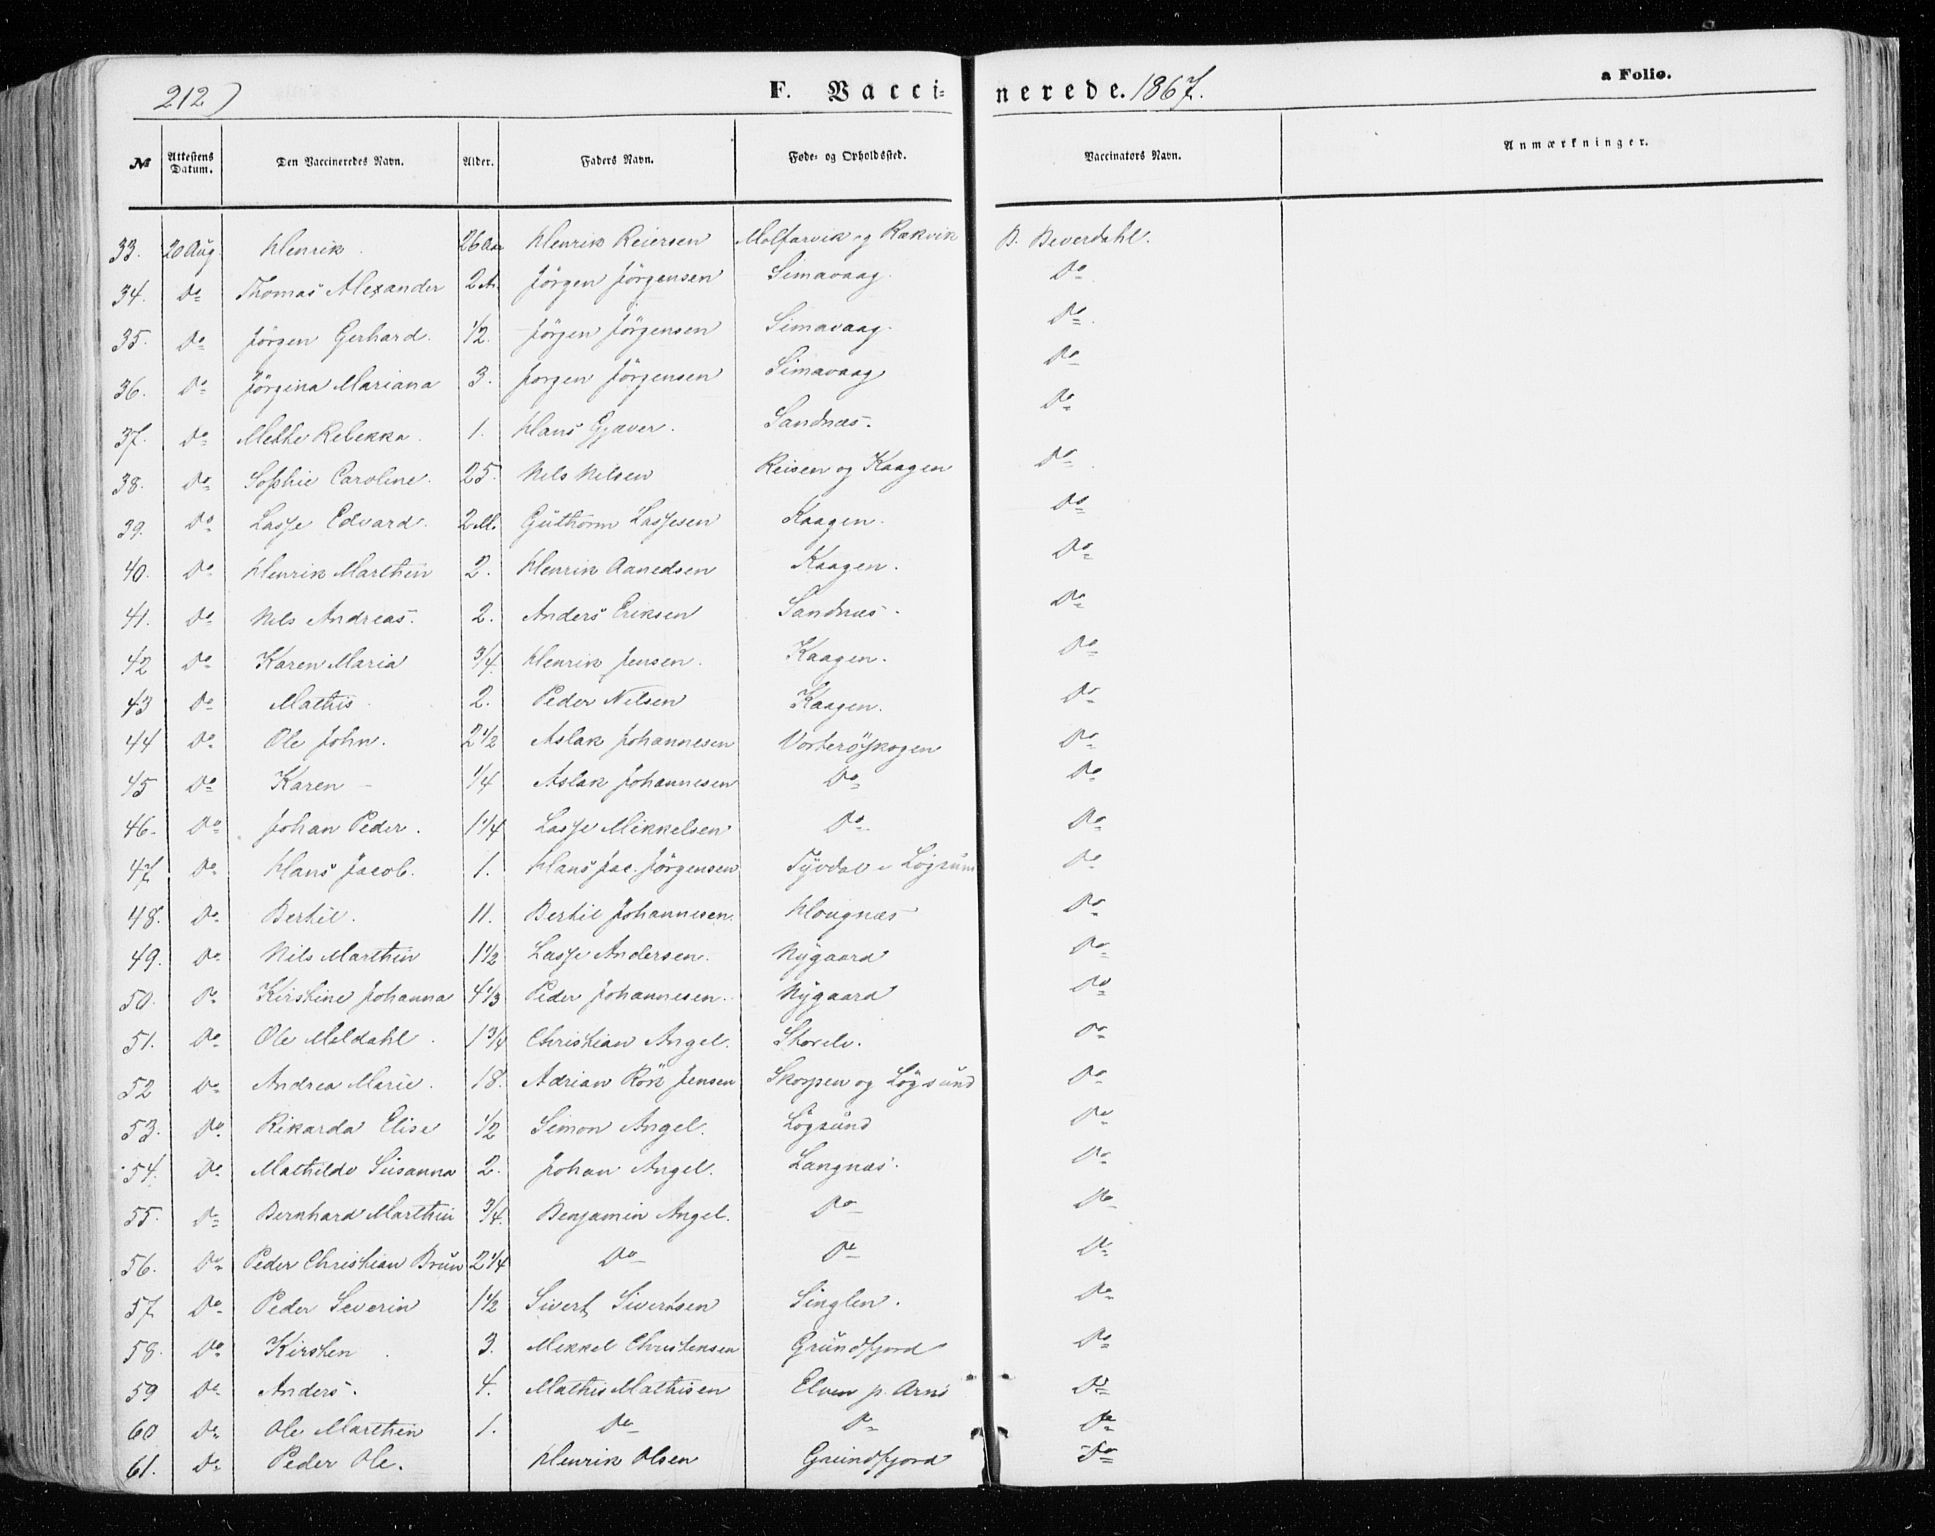 212) F. Vacci= nerede. 1867. a Folio.
№ Attestens Datum. Den Vaccineredes Navn. Alder. Faders Navn. Føde- og Opholdssted. Vaccinators Navn. Anmærkninger.
33. 20 Aug Henrik. 26 Aar Henrik Reiersen Molfarvik og Rakvik B. Beverdahl.
34. Do Thomas Alexander 2 Henrik Jörgen Jörgensen Simavaag. Do
35. Do Jörgen Gerhard. 1/2. Jörgen Jörgensen Simavaag. Do
36. Do Jörgina Mariana 3. Jorgen Jörgensen Simavaag Do
37. Do Methe Rebekka. 1. Hans Gjæver. Sandnæs. Do
38. Do Sophie Caroline. 25. Nils Nilsen Reisen og Kaagen Do
39. Do Lasse Edvard. 2 M. Guthorm Lassesen Kaagen. Do
40. Do Henrik Marthin 2. Henrik Aanedsen Kaagen. Do
41. Do Nils Andreas. 2. Anders Eriksen Sandnæs. Do
42 Do Karen Maria 3/4. Henrik Jensen. Kaagen. Do
43 Do Mathis 2. Peder Nilsen Kaagen. Do
44 Do Ole John. 2 1/2 Aslak Johannesen Vorteröskogen Do
45 Do Karen 1/4 Aslak Johannesen Do Do
46. Do Johan Peder. 1 1/4 Lasse Mikkelsen Do Do
47 Do Hans Jacob. 1. Hans Jac. Jörgensen Tyvdal Løgsun Do
48. Do Bertil. 11. Bertil Johannesen. Hougnæs Do
49. Do Nils Marthin 1 1/2 Lasse Andersen. Nygaard Do
50. Do Kirstine Johanna 4 1/3 Peder Johannesen. Nygaard Do
51. Do Ole Meldahl. 1 3/4 Christian Angel. Storelv. Do
52 Do Andrea Marie. 18. Adrian Rök Jensen Skorpen og Løgsund Do
53. Do Rikarda Elise 1/2 Simon Angel. Løgsund Do
54. Do Mathilde Susanna 2. Johan Angel. Langnæs. Do
55. Do Bernhard Marthin 3/4. Benjamin Angel. Do Do
56. Do Peder Christian Brun 2 1/4 Do Do Do
57 Do Peder Severin 1 1/2 Sivert Sivertsen Singlen. Do
58. Do Kirsten 3. Mikkel Christensen Grundfjord Do
59 Do Anders. 4. Mathis Mathisen Elven p. Arnö Do
60 Do Ole Marthin 1. Do Do Do
61. Do Peder Ole. Henrik Olsen Grundfjord Do